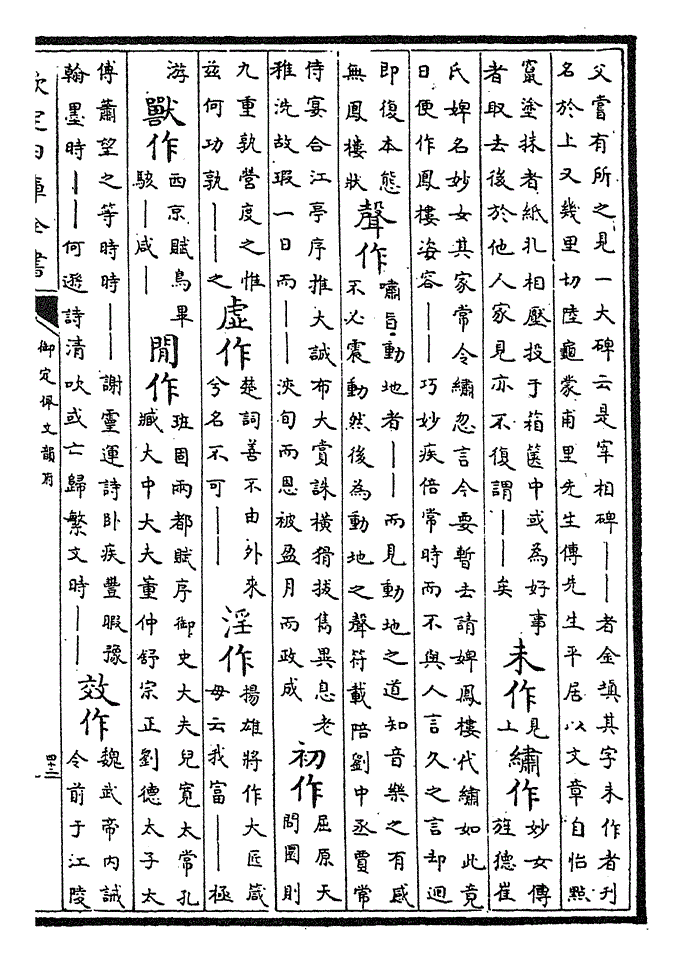 父嘗有所之見一大碑云是宰相碑——者金填其字未作者刋
名於上又幾里切陸龜蒙甫里先生傳先生平居以文章自怡點
竄塗抹者紙札相壓投于箱篋中或為好事
者取去後於他人家見亦不復謂——矣
未作
見
上
繡作
妙女傳
旌德崔
氏婢名妙女其家常令繡忽言今要暫去請婢鳳樓代繡如此竟
日便作鳳樓姿容——巧妙疾倍常時而不與人言久之言却迴
即復本態
無鳳樓狀
聲作
嘯旨動地者——而見動地之道知音樂之有感
不必震動然後為動地之聲符載陪劉中丞賈常
侍宴合江亭序推大誠布大賞誅橫猾拔雋異息老
稚洗故瑕一日而——浹旬而恩被盈月而政成
初作
屈原天
問圜則
九重孰營度之惟
茲何功孰——之
虛作
楚詞善不由外來
兮名不可——
淫作
揚雄將作大匠箴
毋云我富——極
游
獸作
西京賦鳥畢
駭——咸—
閒作
班固兩都賦序御史大夫兒寛太常孔
臧大中大夫董仲舒宗正劉德太子太
傅蕭望之等時時——謝靈運詩卧疾豐暇豫
翰墨時——何遜詩清吹或亡歸繁文時——
效作
魏武帝內誡
令前于江陵
欽定四庫全書
御定佩文韻府
四十三